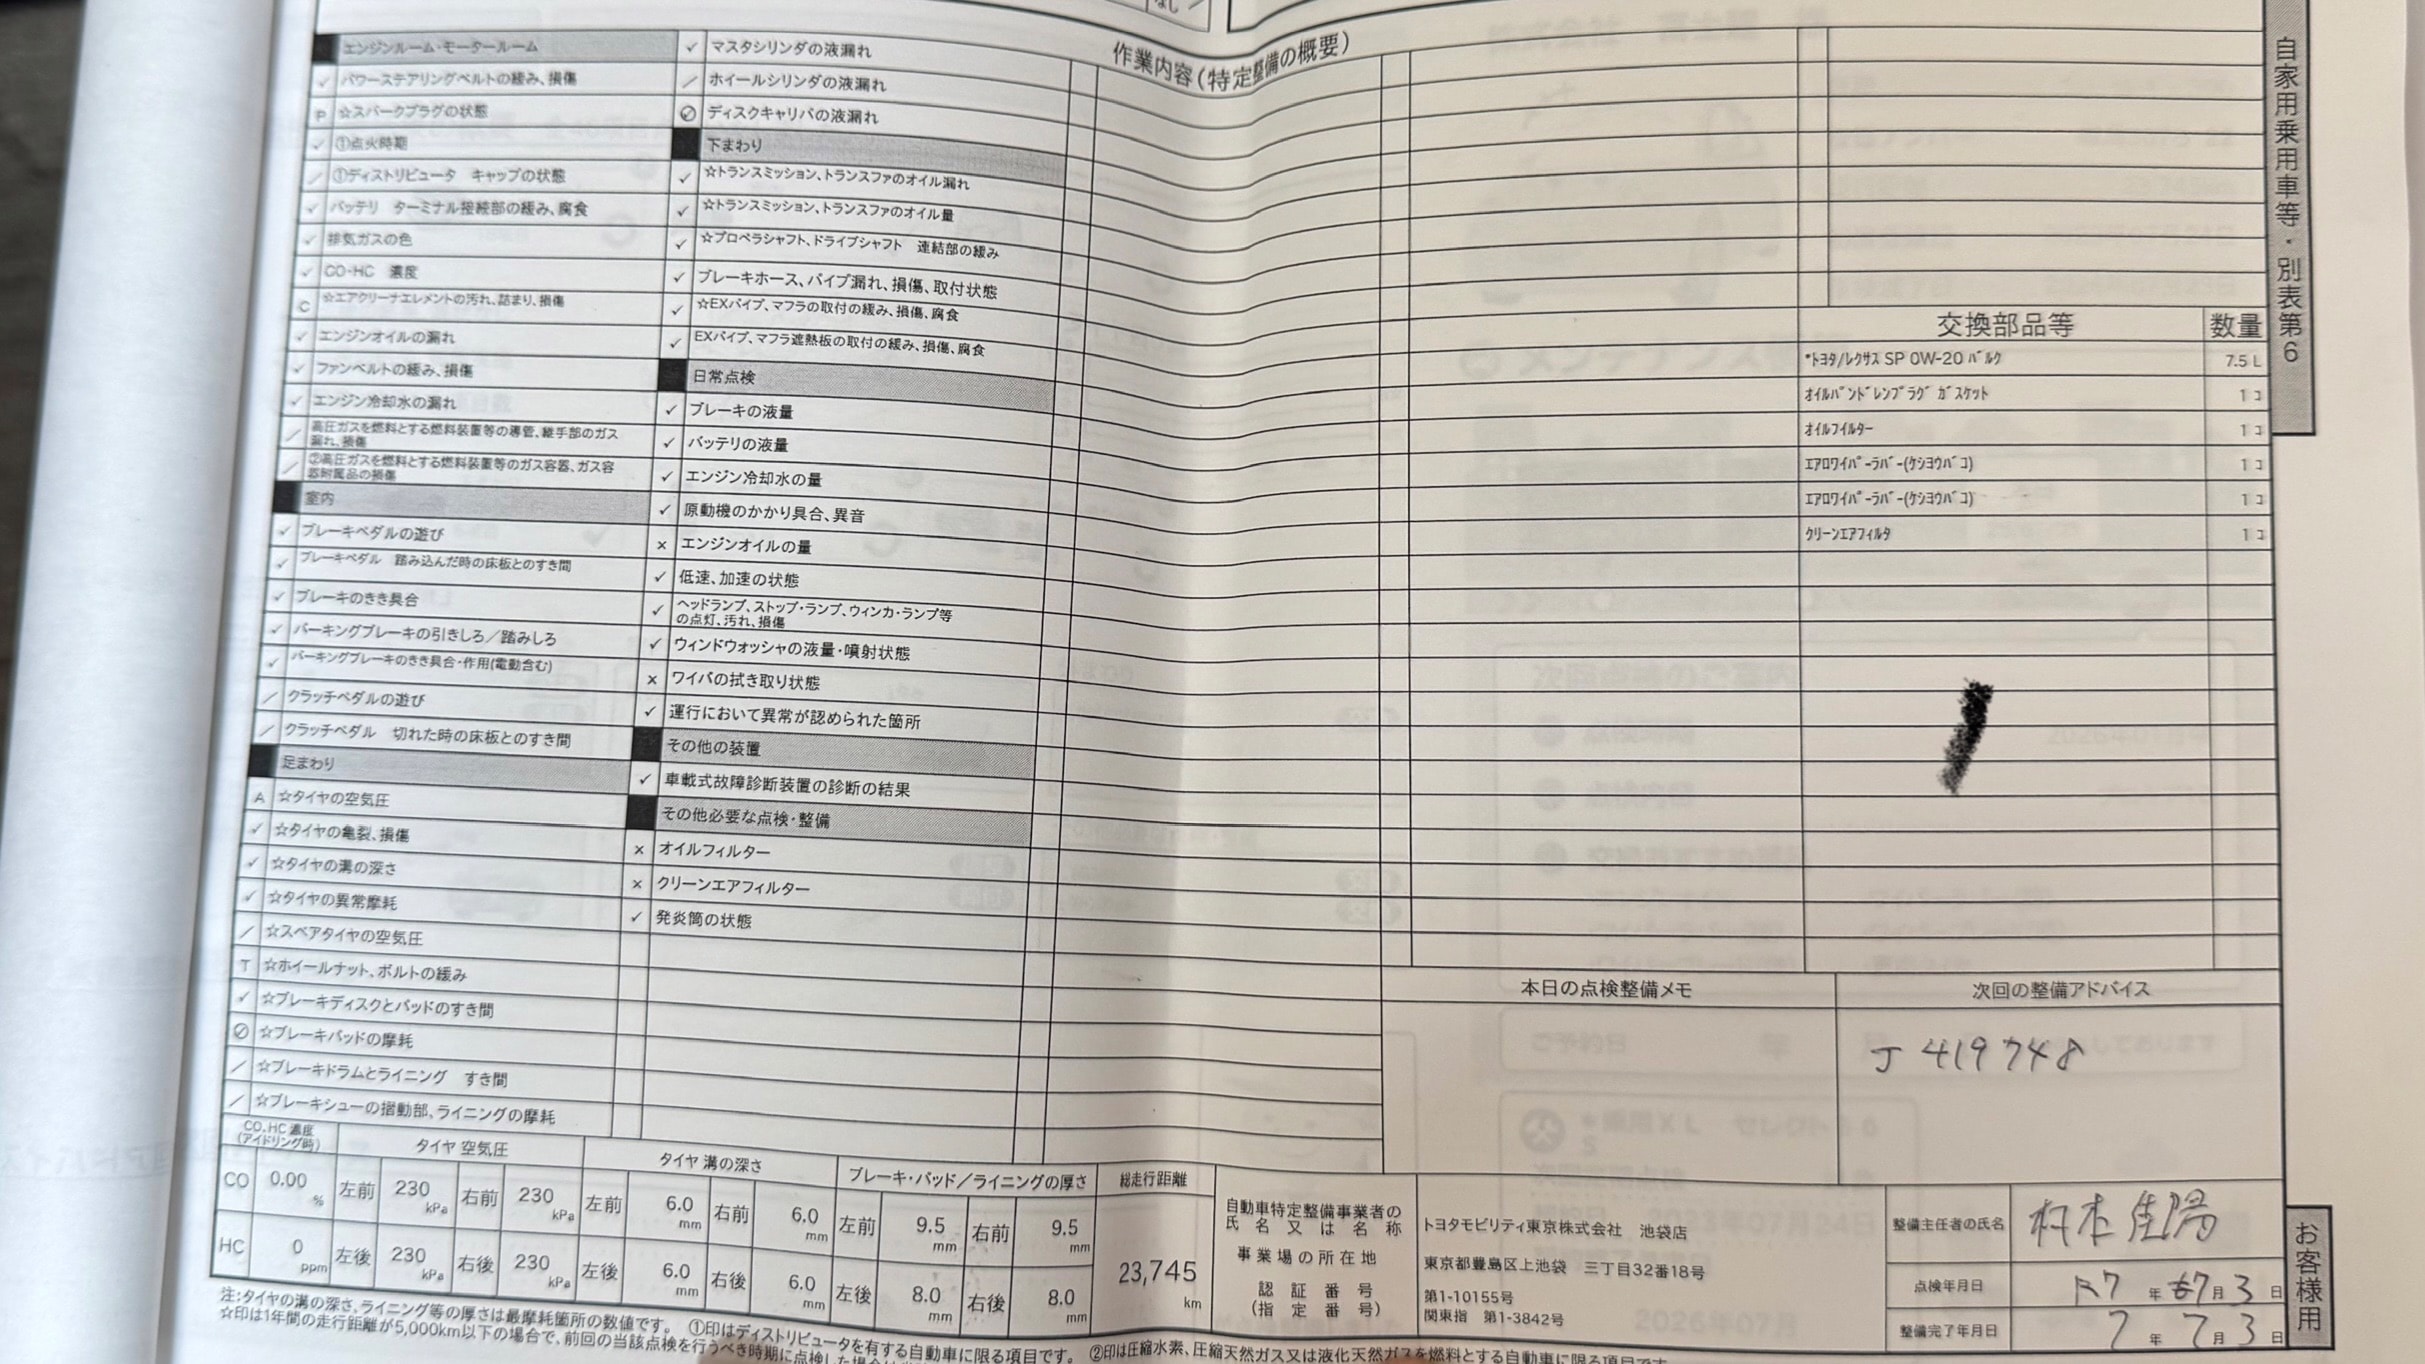 なし
作業内容(特定整備の概要)
自家用乗用車等・別表第6
エンジンルーム・モータールーム
✓ パワーステアリングベルトの緩み、損傷
P ☆スパークプラグの状態
✓ ①点火時期
／ ①ディストリビュータ キャップの状態
✓ バッテリ ターミナル接続部の緩み、腐食
✓ 排気ガスの色
✓ CO・HC 濃度
C ☆エアクリーナエレメントの汚れ、詰まり、損傷
✓ エンジンオイルの漏れ
✓ ファンベルトの緩み、損傷
✓ エンジン冷却水の漏れ
／ 高圧ガスを燃料とする燃料装置等の導管、継手部のガス
漏れ、損傷
／ ②高圧ガスを燃料とする燃料装置等のガス容器、ガス容
器附属品の損傷
室内
✓ ブレーキペダルの遊び
✓ ブレーキペダル 踏み込んだ時の床板とのすき間
✓ ブレーキのきき具合
✓ パーキングブレーキの引きしろ／踏みしろ
✓ パーキングブレーキのきき具合・作用(電動含む)
／ クラッチペダルの遊び
／ クラッチペダル 切れた時の床板とのすき間
足まわり
A ☆タイヤの空気圧
✓ ☆タイヤの亀裂、損傷
✓ ☆タイヤの溝の深さ
✓ ☆タイヤの異常摩耗
／ ☆スペアタイヤの空気圧
T ☆ホイールナット、ボルトの緩み
✓ ☆ブレーキディスクとパッドのすき間
⊘ ☆ブレーキパッドの摩耗
／ ☆ブレーキドラムとライニング すき間
／ ☆ブレーキシューの摺動部、ライニングの摩耗
✓ マスタシリンダの液漏れ
／ ホイールシリンダの液漏れ
⊘ ディスクキャリパの液漏れ
下まわり
✓ ☆トランスミッション、トランスファのオイル漏れ
✓ ☆トランスミッション、トランスファのオイル量
✓ ☆プロペラシャフト、ドライブシャフト 連結部の緩み
✓ ブレーキホース、パイプ漏れ、損傷、取付状態
✓ ☆EXパイプ、マフラの取付の緩み、損傷、腐食
✓ EXパイプ、マフラ遮熱板の取付の緩み、損傷、腐食
日常点検
✓ ブレーキの液量
✓ バッテリの液量
✓ エンジン冷却水の量
✓ 原動機のかかり具合、異音
× エンジンオイルの量
✓ 低速、加速の状態
✓ ヘッドランプ、ストップ・ランプ、ウィンカ・ランプ等
の点灯、汚れ、損傷
✓ ウィンドウォッシャの液量・噴射状態
× ワイパの拭き取り状態
✓ 運行において異常が認められた箇所
その他の装置
✓ 車載式故障診断装置の診断の結果
その他必要な点検・整備
× オイルフィルター
× クリーンエアフィルター
✓ 発炎筒の状態
交換部品等 数量
*トヨタ/レクサス SP 0W-20 バルク 7.5 L
オイルパンドレンプラグ ガスケット 1 コ
オイルフィルター 1 コ
エアロワイパーラバー(ケショウバコ) 1 コ
エアロワイパーラバー(ケショウバコ) 1 コ
クリーンエアフィルタ 1 コ
本日の点検整備メモ 次回の整備アドバイス
J 419748
CO、HC 濃度
(アイドリング時)
タイヤ 空気圧
タイヤ 溝の深さ
ブレーキ・パッド／ライニングの厚さ
総走行距離
CO 0.00 % 左前 230 kPa 右前 230 kPa 左前 6.0 mm 右前 6.0 mm 左前 9.5 mm 右前 9.5 mm
HC 0 ppm 左後 230 kPa 右後 230 kPa 左後 6.0 mm 右後 6.0 mm 左後 8.0 mm 右後 8.0 mm
23,745 km
自動車特定整備事業者の
氏名又は名称
事業場の所在地
認証番号
(指定番号)
トヨタモビリティ東京株式会社 池袋店
東京都豊島区上池袋 三丁目32番18号
第1-10155号
関東指 第1-3842号
整備主任者の氏名
点検年月日 R7 年 7 月 3 日
整備完了年月日 7 年 7 月 3 日
お客様用
注:タイヤの溝の深さ、ライニング等の厚さは最摩耗箇所の数値です。 ①印はディストリビュータを有する自動車に限る項目です。 ②印は圧縮水素、圧縮天然ガス又は液化天然ガスを燃料とする自動車に限る項目です。
☆印は1年間の走行距離が5,000km以下の場合で、前回の当該点検を行うべき時期に点検した場合は